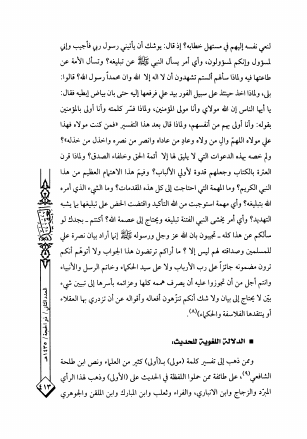 لنعي نفسه إليهم في مستهل خطابه؟ إذ قال: يوشك أن يأتيني رسول ربي فأجيب وإني
لمسؤول وإنكم لمسؤولون، وأي أمر يسأل النبي ﷺ عن تبليغه؟ وتسأل الأمة عن
طاعتها فيه ولماذا سألهم ألستم تشهدون أن لا اله إلا الله وان محمداً رسول الله؟ قالوا:
بلى، ولماذا اخذ حينئذ على سبيل الفور بيد علي فرفعها إليه حتى بان بياض إبطيه فقال:
يا أيها الناس إن الله مولاي وأنا مولى المؤمنين، ولماذا فسّر كلمته وأنا أولى بالمؤمنين
بقوله: وأنا أولى بهم من أنفسهم، ولماذا قال بعد هذا التفسير «فمن كنت مولاه فهذا
علي مولاه اللهمّ والِ من ولاه وعادِ من عاداه وانصر من نصره واخذل من خذله»؟
ولم خصه بهذه الدعوات التي لا يليق لها إلا أئمة الحق وخلفاء الصدق؟ ولماذا قرن
العترة بالكتاب وجعلهم قدوة لأولي الألباب؟ وفيمَ هذا الاهتمام العظيم من هذا
النبي الكريم؟ وما المهمة التي احتاجت إلى كل هذه المقدمات؟ وما الشيء الذي أمره
الله بتبليغه؟ وأي مهمة استوجبت من الله التأكيد واقتضت الحض على تبليغها بما يشبه
التهديد؟ وأي أمر يخشى النبي الفتنة بتبليغه ويحتاج إلى عصمة الله؟ أكنتم ـ بجدك لو
سألكم عن هذا كله ـ تجيبون بان الله عز وجل ورسوله ﷺ إنما أراد بيان نصرة علي
للمسلمين وصداقته لهم ليس إلا ... ؟ ما أراكم ترتضون هذا الجواب ولا أتوهم أنكم
ترون مضمونه جائزاً على رب الأرباب ولا على سيد الحكماء وخاتم الرسل والأنبياء
وانتم أجل من أن تجوزوا عليه أن يصرف هممه كلها وعزائمه بأسرها إلى تبيين شيء
بيّن لا يحتاج إلى بيان ولا شك أنكم تنزّهون أفعاله وأقواله عن أن تزدري بها العقلاء
أو ينتقدها الفلاسفة والحكماء(٨).
• الدلالة اللغوية للحديث:
وممن ذهب إلى تفسير كلمة (مولى) بـ(أولى) كثير من العلماء ونص ابن طلحة
الشافعي(٩)، على طائفة ممن حملوا اللفظة في الحديث على (الأولى) وذهب هذا الرأي
المبرّد والزجاج وابن الانباري، والفراء وثعلب وابن المبارك وابن الملقن والجوهري
العدد الثاني / ذو الحجة / ١٤٣٥هـ
١٣